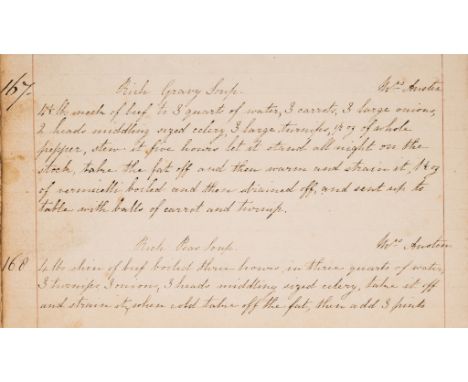 167. Rich Gravy Soup. Mrs Austen
lb neck of beef to 3 quarts of water, 3 carrots, 3 large onions,
2 heads middling sized celery, 3 large turnips, oz of whole
pepper, stew it five hours let it stand all night on the
stock, take the fat off and then warm and strain it, oz
of vermicelli boiled and then strained off, and sent up to
table with balls of carrot and turnip.
168 Rich Peas Soup. Mrs Austen
lb shin of beef boiled three hours, in three quarts of water,
3 turnips 3 onions, 3 heads middling sized celery, take it off
and strain it, when cold take off the fat, then add 3 pints